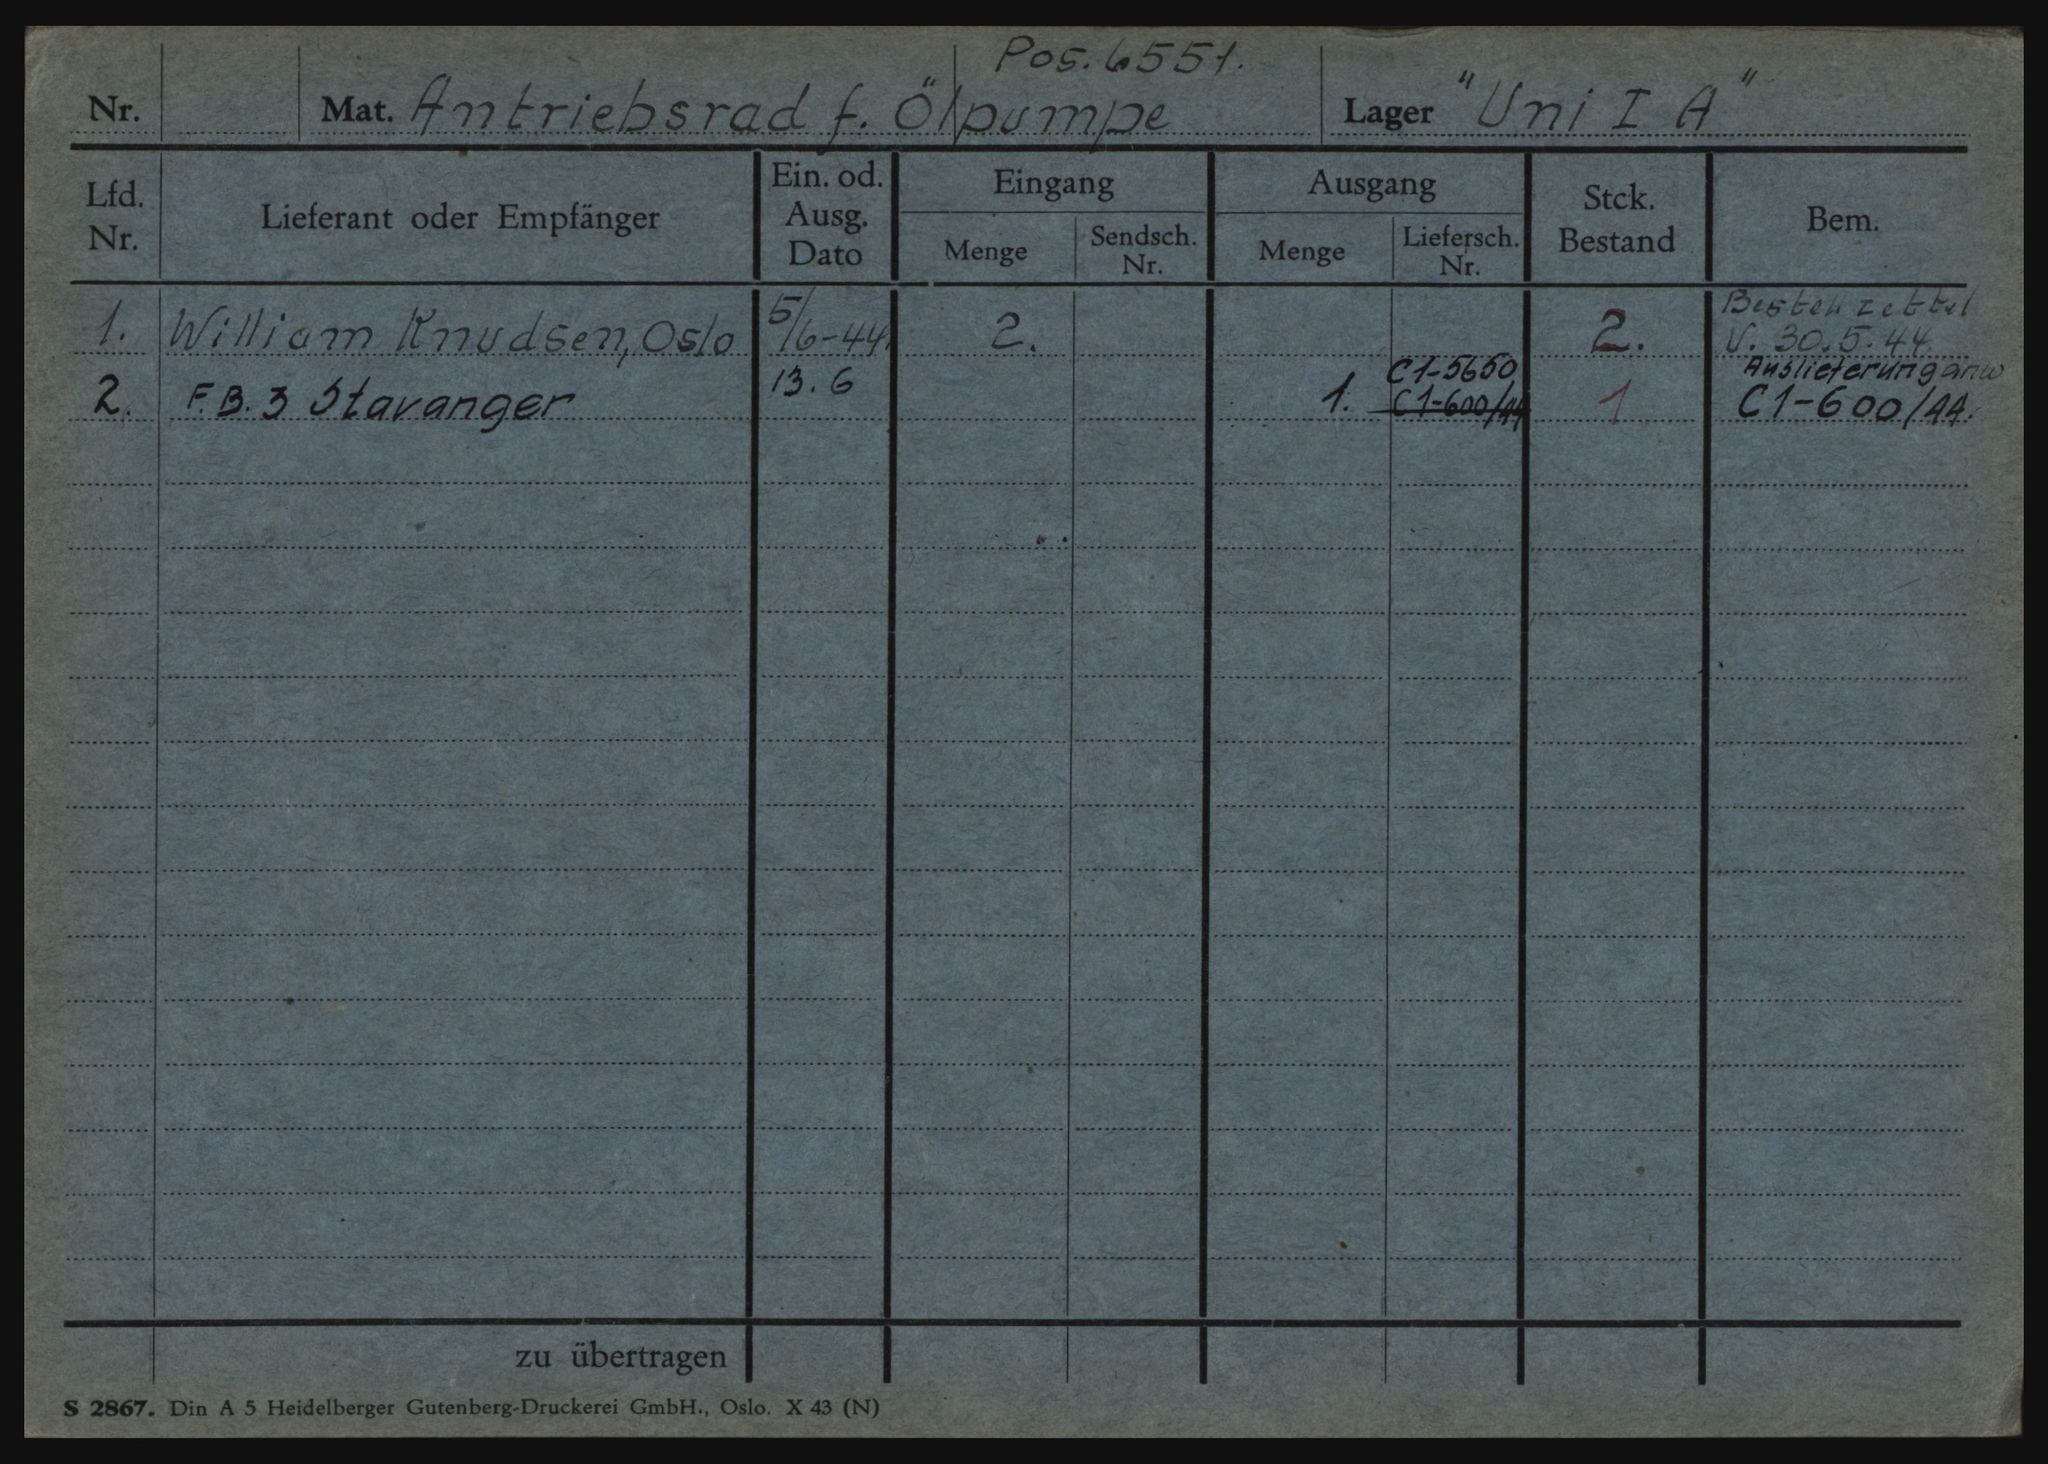 Pos. 6551.
Nr. Mat. Antriebsrad f. Ölpumpe Lager "Uni I A"
Lfd. Nr. Lieferant oder Empfänger Ein. od. Ausg. Dato Eingang Menge Sendsch. Nr. Ausgang Menge Liefersch. Nr. Stck. Bestand Bem.
1. William Knudsen, Oslo 5/6-44. 2. 2. Bestellzettel V. 30.5.44.
2. F.B. 3 Stavanger 13.6 1. C1-5650 C1-600/44 1 Auslieferunganw C1-600/44.
zu übertragen
S 2867. Din A 5 Heidelberger Gutenberg-Druckerei GmbH., Oslo. X 43 (N)